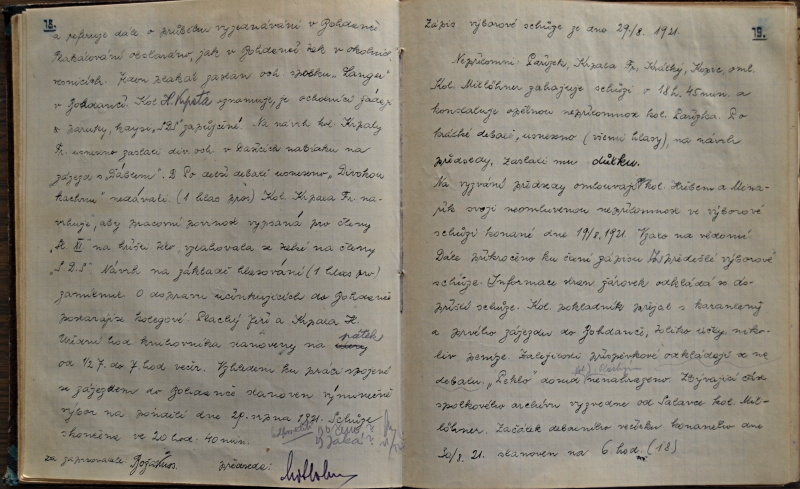 18.
a referuje dále o průběhu vyjednávání v Bohdanči
Plakátování obstaráno, jak v Bohdanči tak v okolních
vesnicích. Jeden plakát zaslán och. spolku „Langer"
v Bohdanči. Kol. H. Krpata oznamuje, že ochotníci zádají
o paruky,
Na návrh kol. Krpaty
Fr. usneseno zaslati div. och. v Dašicích nabídku na
zájezd s „Ďáblem". Po delší debatě usneseno „Divokou
kachnu" nedávati. (1 hlas proti) Kol. Krpata Fr. na-
vrhuje, aby pracovní povinnost vypsaná pro členy
vztahovala se také na členy
„S.D.S" Návrh na základě hlasování (1 hlas pro)
zamítnut. O dopravu účinkujících do Bohdanče
postarají se kolegové. Plachý Jiří a Krpata H.
Úřední hod. knihovníka stanoveny na pátek
od 1/2 7. do 7 hod. večer. Vzhledem ku práci spojené
se zájezdem do Bohdanče stanoven výjimečně
výbor na pondělí dne 29. srpna 1921. Schůze
skončena ve 20 hod. 40 min.
za zapisovatele: předseda:
19.
Zápis výborové schůze ze dne 29/8. 1921.
Nepřítomni: Pařízek, Krpata Fr., Krátký, Kopic, oml.
Kol. Mitlöhner zahajuje schůzi v 18 h. 45 min. a
konstatuje opětnou nepřítomnost kol. Pařízka. Po
krátké debatě, usneseno (všemi hlasy), na návrh
předsedy, zaslati mu důtku.
Na vyzvání předsedy omlouvají kol. Hřebem a Mena-
řík svoji neomluvenou nepřítomnost ve výborové
schůzi konané dne 19/8. 1921. Vzato na vědomí.
Dále přikročeno ku čtení zápisu předešlé výborové
schůze. Informace stran žárovek odkládá se do
příští schůze. Kol. pokladník přijal s karantény
a prvého zájezdu do Bohdanče, tolike účty niko-
liv peníze. Zálejiosti příspěvkové odkládají se na
debatu. „Peklo" dosud nenahrazeno. Zbývající část
spolkového archivu vyzvedne od Salavce kol. Mit-
löhner. Začátek debatního večírku konaného dne
30/8. 21. stanoven na 6. hod. (18)